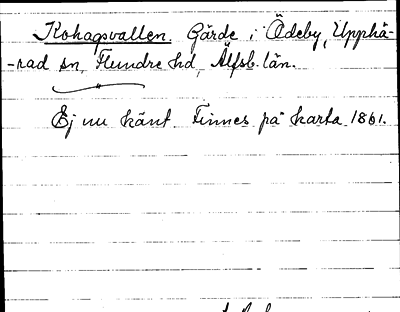 Kohagsvallen. Gärde i Ödeby, Upphä-
-rad sn, Flundre hd, Älfsb. län.
Ej nu känt. Finnes på karta 1861.